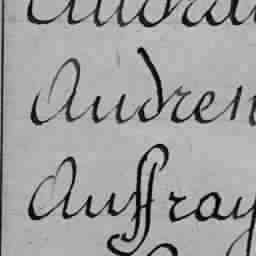 Audren
Auffray